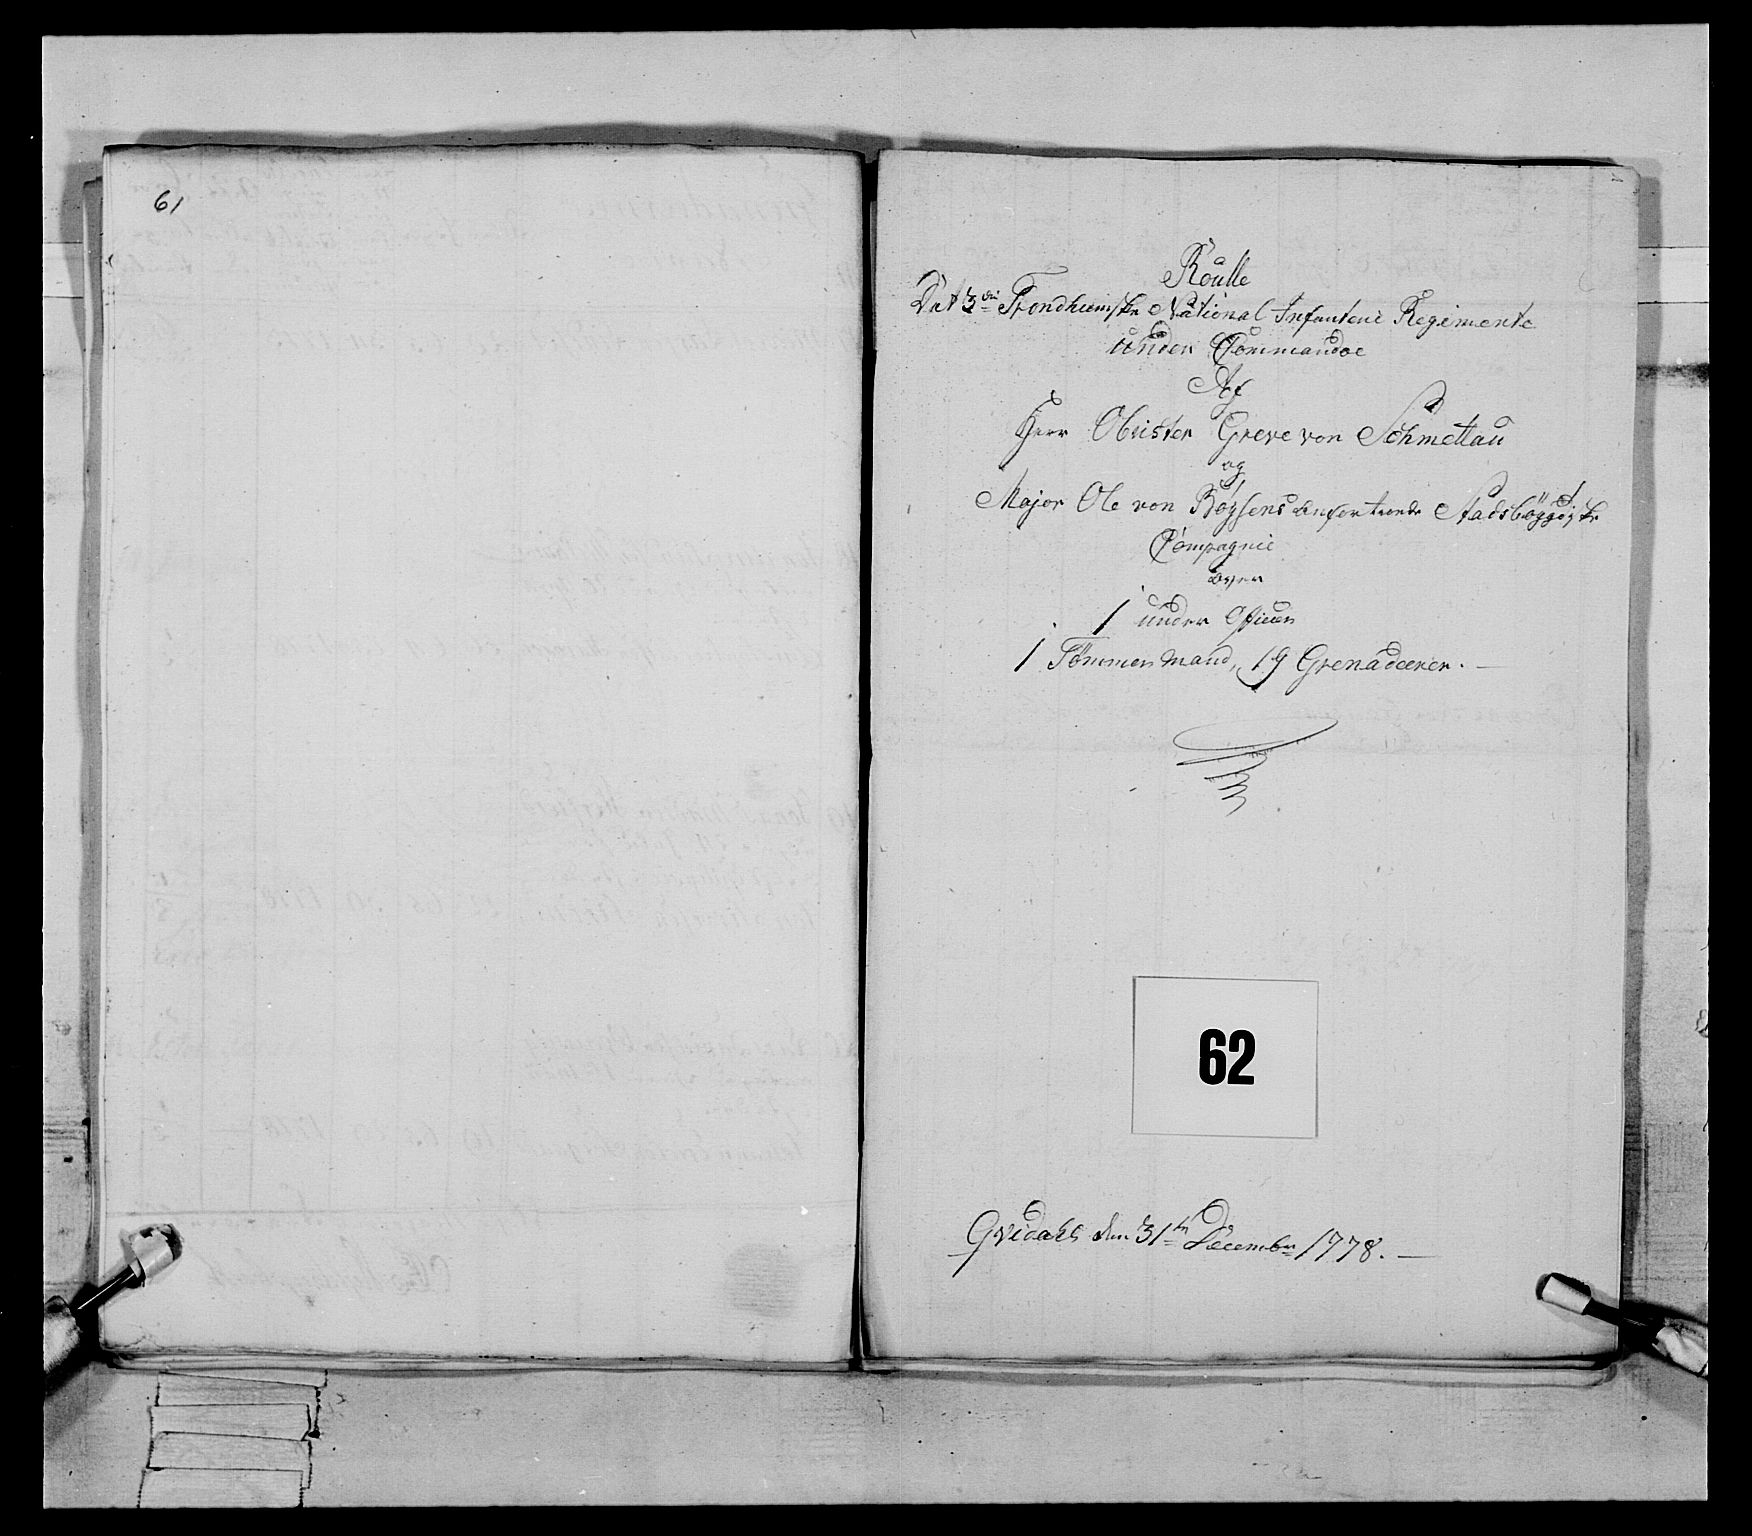 61
Roulle
Det 3die Trondhiemske National Infanterie Regimente
under Commandoe
Af
Herr Obrister Greve von Schmettau
og
Major Ole von Røysens anfortroede Stadsbøygdske
Compagnie
over
1 under Officer
1 Tømmer mand, 19 Grenadeerer.
62
den 31te Decembr 1778.